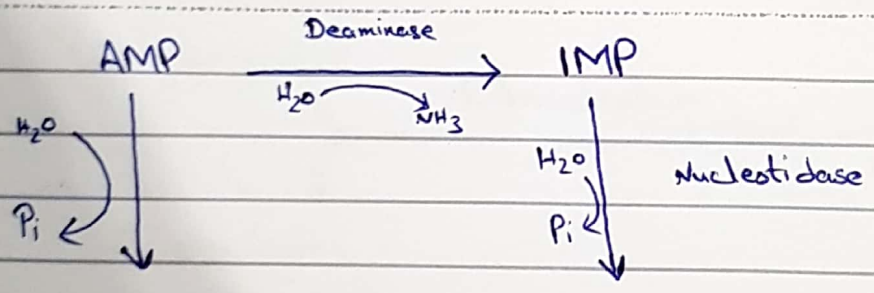 Deaminase
AMP
IMP
H₂O
NH₃
H₂O
Pi
H₂O
Pi
Nucleotidase